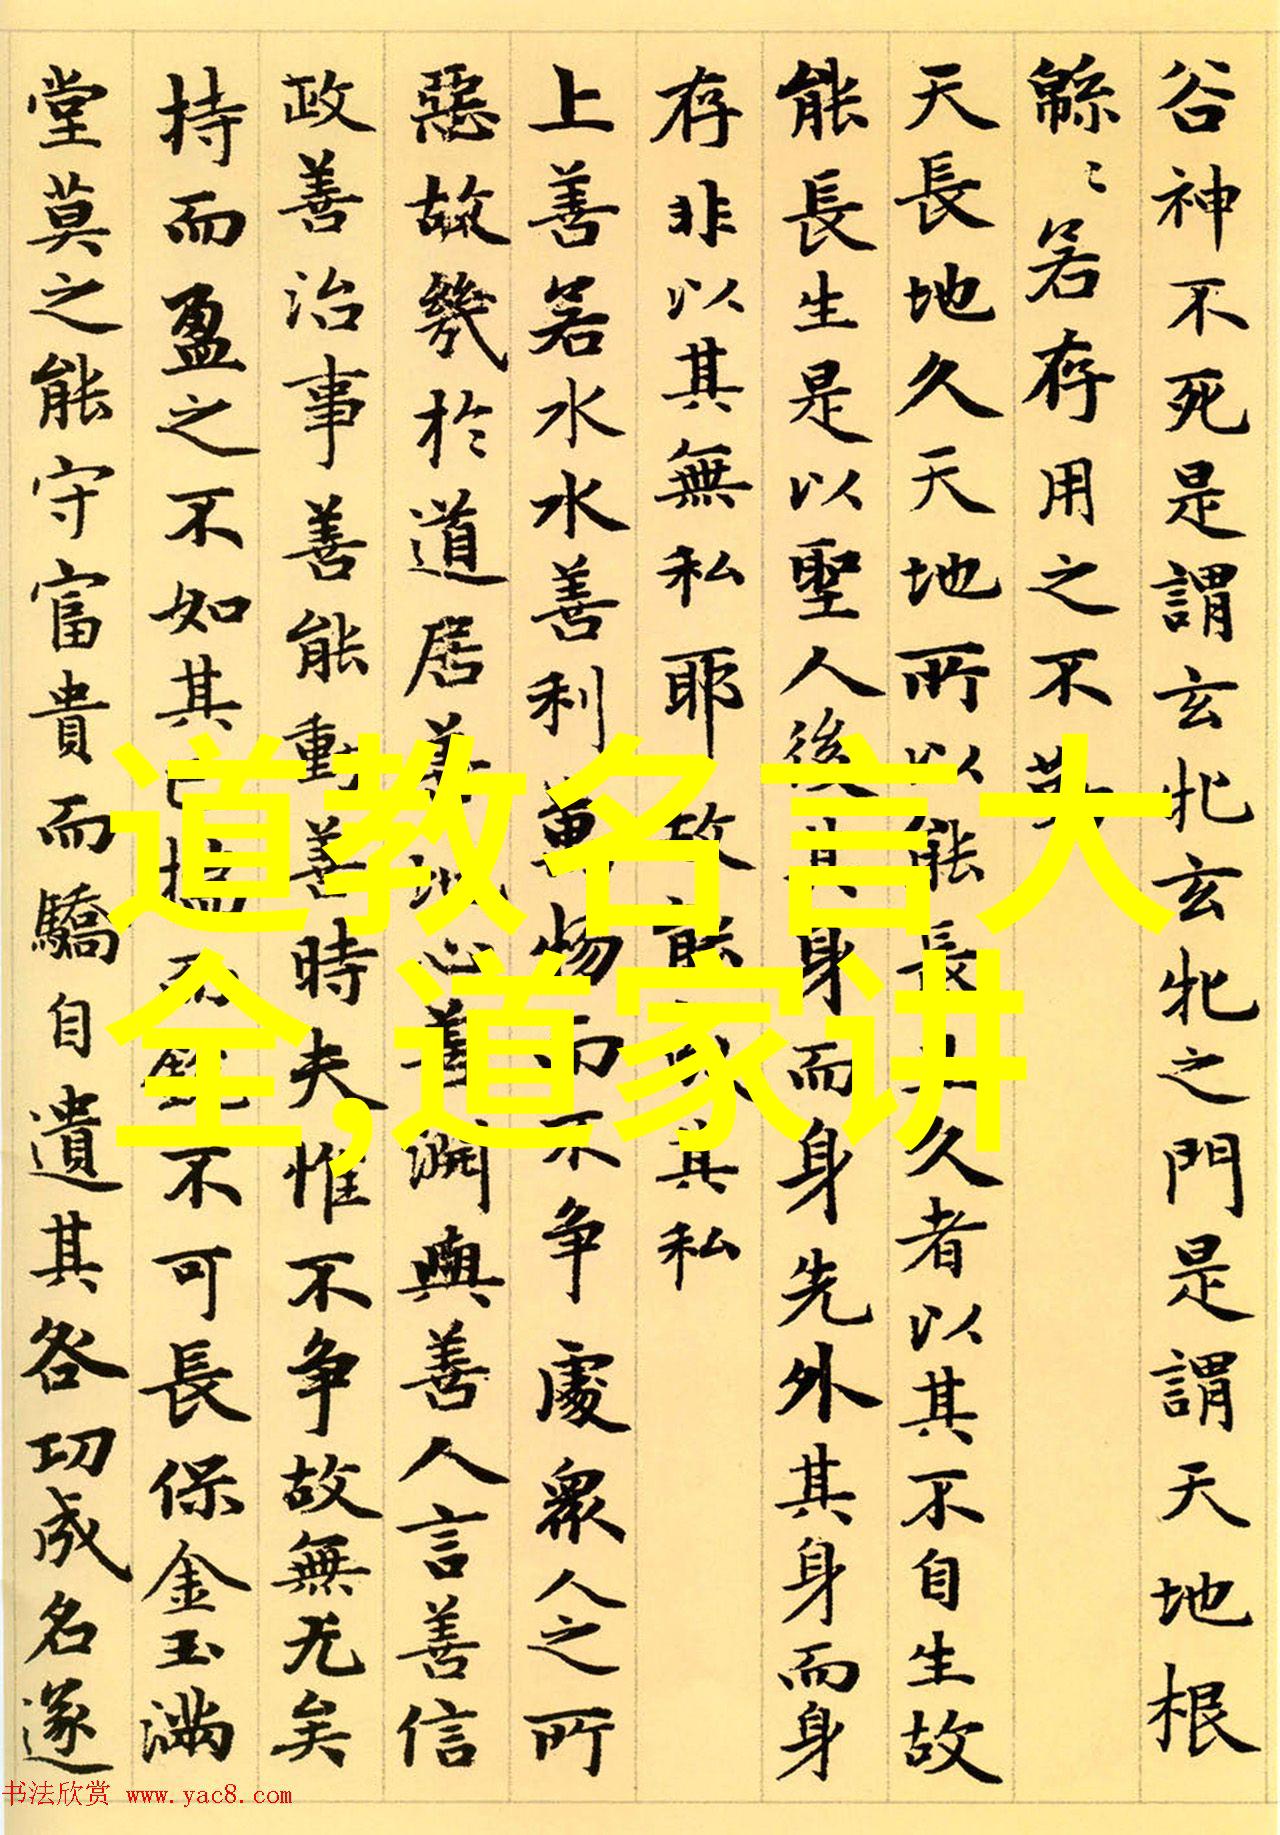 谷神不死是謂玄牝玄牝之門是謂天地根
緜〻若存用之不勤
天長地久天地所以能長且久者以其不自生故
能長生是以聖人後其身而身先外其身而身
存非以其無私耶故能成其私
上善若水水善利萬物而不争處衆人之所
惡故幾於道居善地心善淵與善人言善信
政善治事善能動善時夫惟不争故無尤矣
持而盈之不如其已揣而銳不可長保金玉滿
堂莫之能守富貴而驕自遺其咎功成名遂
道教名言大
全,道家讲
书法欣赏 www.yac8.com